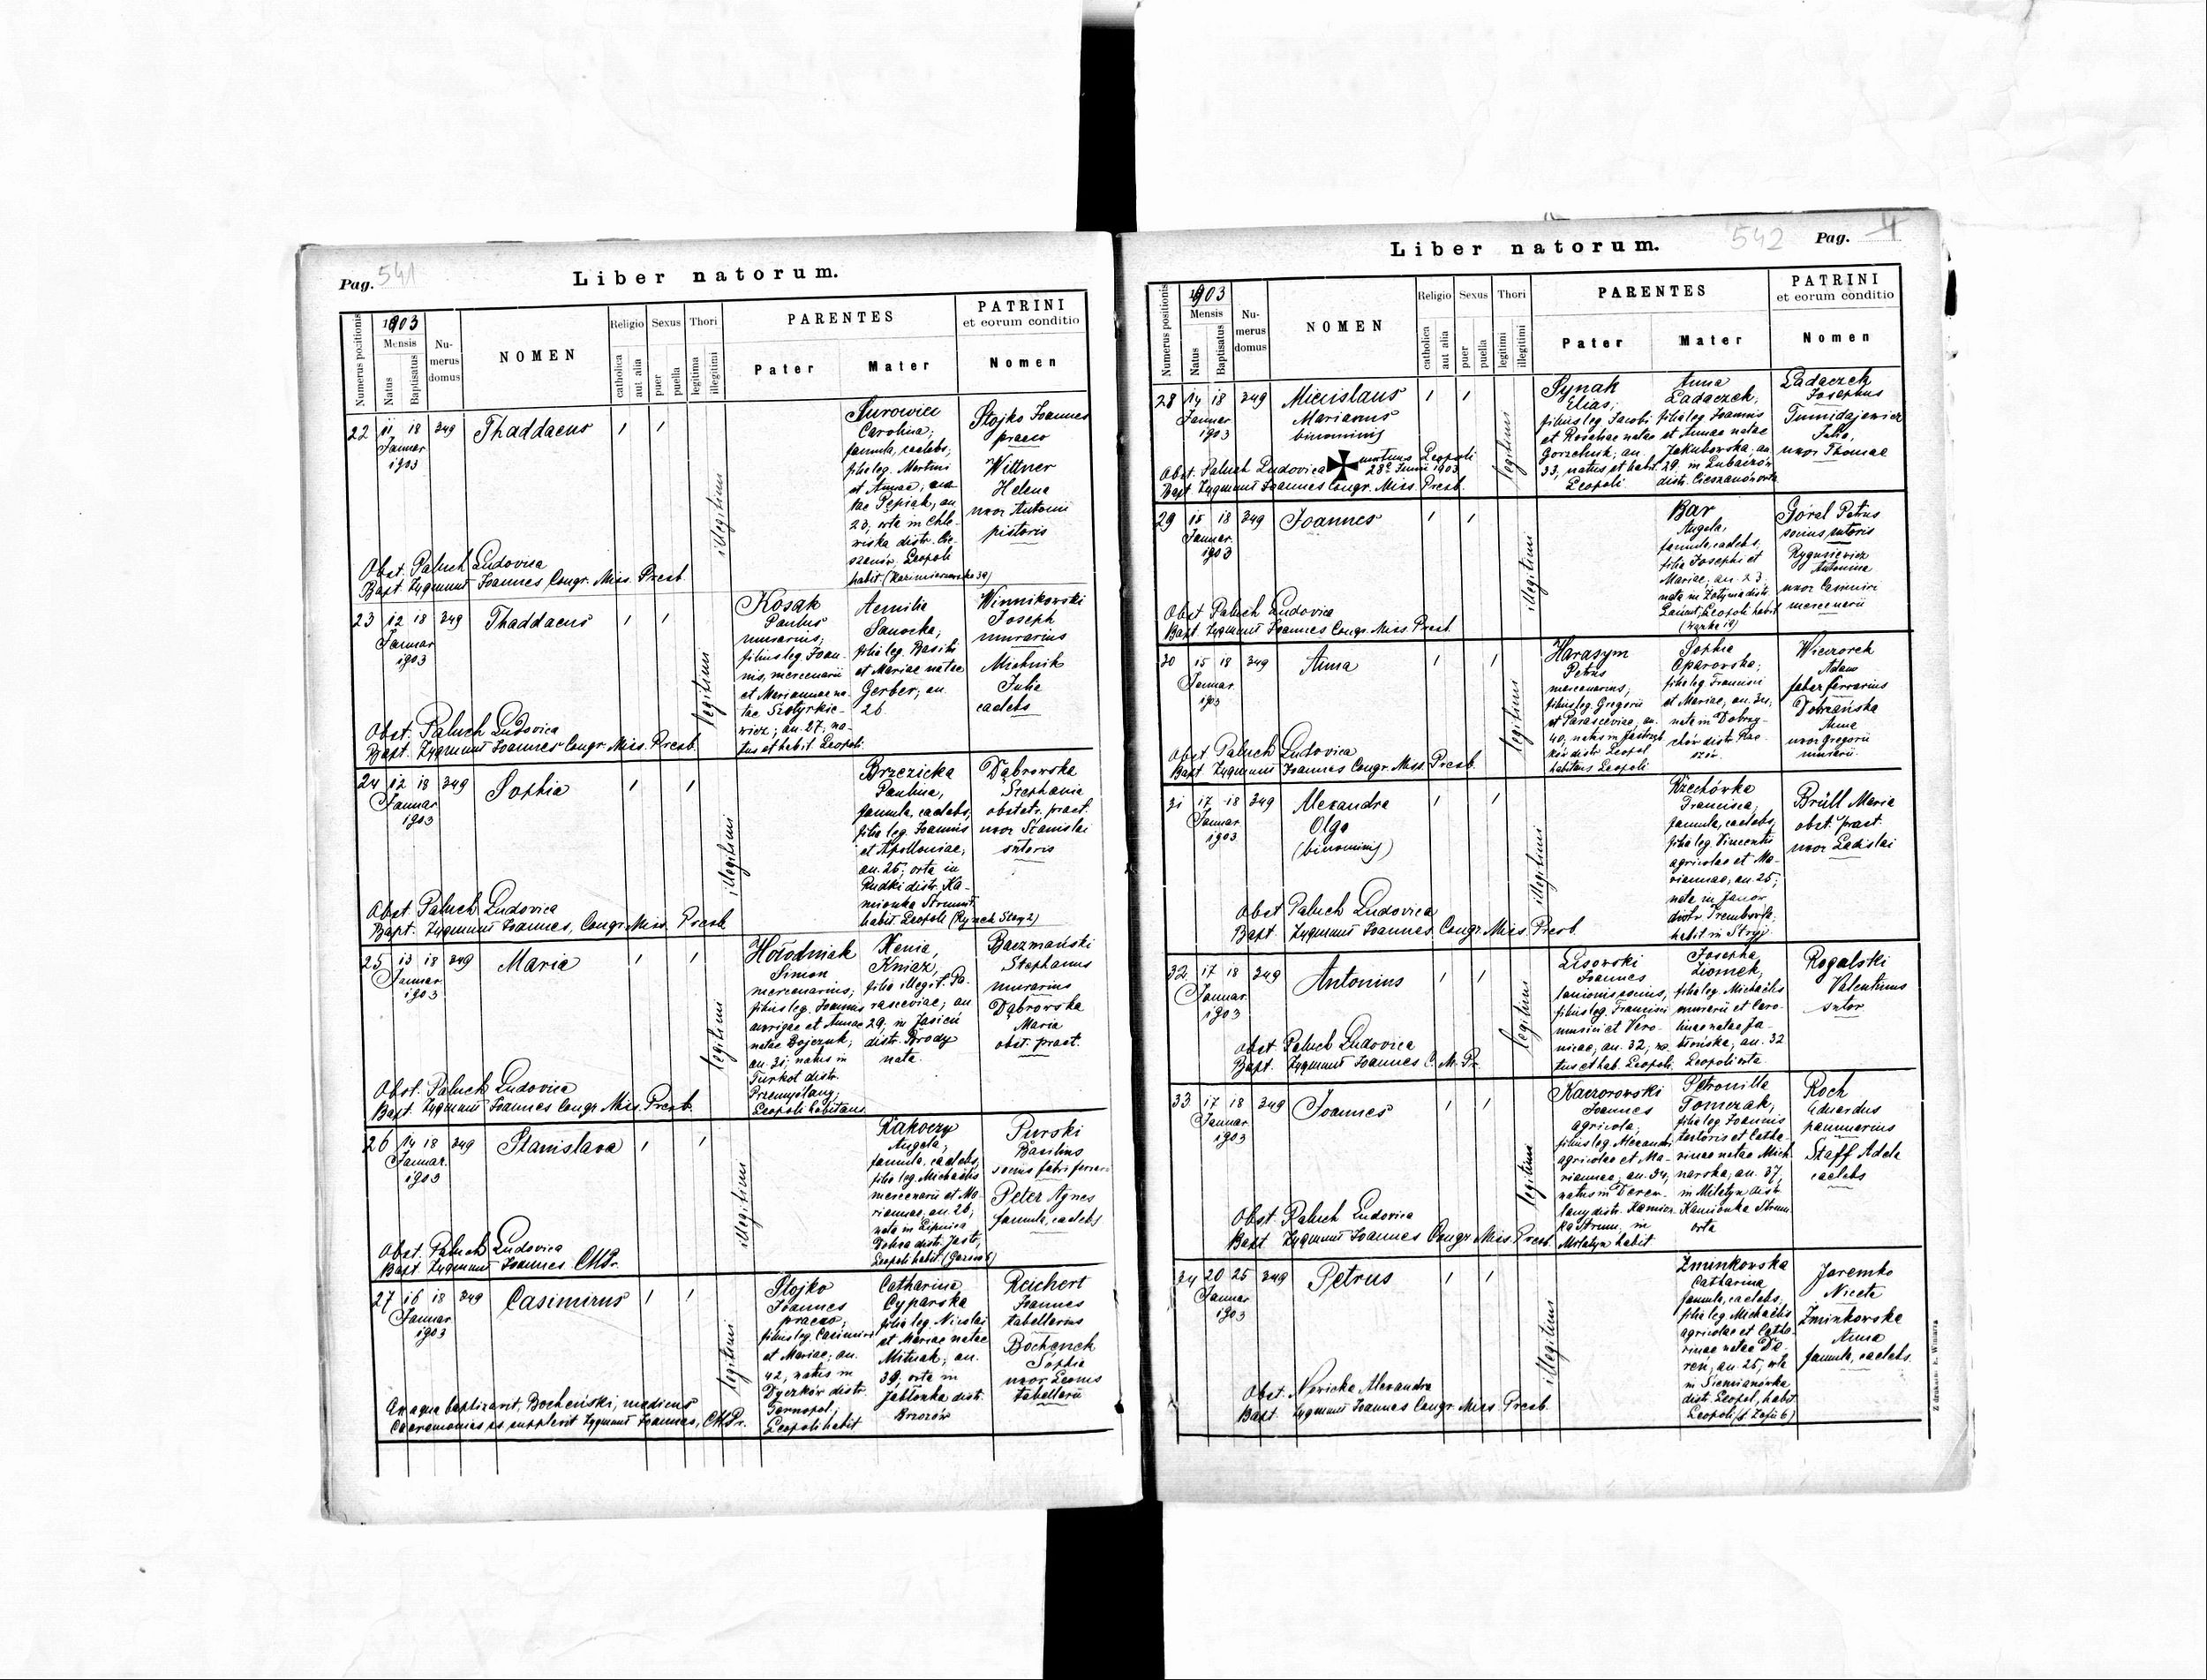 Pag. 541
Liber natorum.
Numerus positionis
1903
Mensis
Natus
Baptisatus
Numerus domus
NOMEN
Religio
catholica
aut alia
Sexus
puer
puella
Thori
legitimi
illegitimi
PARENTES
Pater
Mater
PATRINI
et eorum conditio
Nomen
22 11 18 349 Thaddaeus 1 1
Januar
1903
illegitimi
Surowiec
Carolina;
famula, caelebs;
filia leg. Martini
et Annae, na-
tae Pępiak, an
23, orta in Chle-
wiska distr. Cie-
szanów, Leopoli
habit. (Kazimierowska 39)
Stojko Joannes
praeco
Wittner
Helena
uxor Antonii
pistoris
Obst. Paluch Ludovica
Bapt. Zygmunt Joannes Congr. Miss. Presb.
23 12 18 349 Thaddaeus 1 1
Januar
1903
legitimi
Kosak
Paulus
murarius;
filius leg. Joan-
nis, mercenarii
et Mariannae na-
tae
wicz; an. 27, na-
tus et habit. Leopoli.
Aemilia
Sanocka;
filia leg. Basilii
et Mariae natae
Gerber; an.
26
Winnikowski
Joseph
murarius
Michnik
Julia
caelebs
Obst. Paluch Ludovica
Bapt. Zygmunt Joannes Congr. Miss. Presb.
24 12 18 349 Sophia 1 1
Januar
1903
illegitimi
Brzezicka
Paulina,
famula, caelebs,
filia leg. Joannis
et Apolloniae,
an. 25; orta in
Rudki distr. Ka-
mionka Strumił.
habit Leopoli (Rynek 2)
Dąbrowska
Stephania
obstetr. pract.
uxor Stanislai
sutoris
Obst. Paluch Ludovica
Bapt. Zygmunt Joannes, Congr. Miss. Presb
25 13 18 349 Maria 1 1
Januar
1903
legitimi
Hołodniak
Simon
mercenarius;
filius leg. Joannis
aurigae et Annae
natae Bojczuk;
an. 31; natus in
Turkot distr.
Przemyślany;
Leopoli habitans
Xenia,
Kniaź,
filia illegit. Pa-
rasceviae; an
29, in Jasień
distr. Brody
nata.
Baczmański
Stephanus
murarius
Dąbrowska
Maria
obst. pract.
Obst. Paluch Ludovica
Bapt. Zygmunt Joannes Congr. Miss. Presb.
26 14 18 349 Stanislava 1 1
Januar.
1903
illegitimi
Rakoczy
Angela;
famula, caelebs,
filia leg. Michaëlis
mercenarii et Ma-
riannae; an. 26;
nata in Lipnica
Dolna distr. Jasło,
Leopoli habit
Purski
Basilius
socius fabri ferrari
Peter Agnes
famula, caelebs
Obst. Paluch Ludovica
Bapt. Zygmunt Joannes CMPr.
27 16 18 349 Casimirus 1 1
Januar
1903
legitimi
Stojko
Joannes
praeco;
filius leg. Casimiri
et Mariae; an.
42, natus in
Dyczków distr.
Tarnopol;
Leopoli habit
Catharina
Cyparska
filia leg. Nicolai
et Mariae natae
Mituak; an.
39, orta in
Jabłonka distr.
Brzozów
Reichert
Joannes
tabellarius
Bochenek
Sophia
uxor Leonis
tabellarii
Ex aqua baptizavit, Bocheński, medicus
Caeremonias supplevit Zygmunt Joannes, CMPr.
Liber natorum.
542 Pag. 4
Numerus positionis
1903
Mensis
Natus
Baptisatus
Numerus domus
NOMEN
Religio
catholica
aut alia
Sexus
puer
puella
Thori
legitimi
illegitimi
PARENTES
Pater
Mater
PATRINI
et eorum conditio
Nomen
28 14 18 349 Miecislaus 1 1
Januar
1903
Marianus
binominis
legitimi
Synak
Elias;
filius leg. Jacobi
et Rosaliae natae
Gorzelnik; an.
33, natus et habit.
Leopoli
Anna
Ladaczek;
filia leg. Joannis
et Annae natae
Jakubowska; an.
29, in Lubaczów
distr. Cieszanów orta
Ladaczek
Josephus
Tumidajewicz
Julia,
uxor Thomae
mortuus Leopoli
28ª Junii 1903
Obst. Paluch Ludovica
Bapt. Zygmunt Joannes Congr. Miss. Presb.
29 15 18 349 Joannes 1 1
Januar.
1903
illegitimi
Bar
Angela,
famula, caelebs,
filia Josephi et
Mariae; an. 23
nata in Żołynia distr.
Łańcut; Leopoli habit
Góral Petrus
socius sutoris
Rygusiewicz
Antonina
uxor Casimiri
mercenarii
Obst. Paluch Ludovica
Bapt. Zygmunt Joannes Congr. Miss. Presb.
30 15 18 349 Anna 1 1
Januar.
1903
legitimi
Harasym
Petrus
mercenarius;
filius leg. Gregorii
et Parasceviae; an.
40; natus in
distr. Leopol
habitans Leopoli
Sophia
Oparowska;
filia leg. Francisci
et Mariae, an. 34,
nata in Dobrzy-
chów distr. Rze-
szów.
Wieczorek
Adam
faber ferrarius
Dobrzańska
Anna
uxor Gregorii
murarii
Obst. Paluch Ludovica
Bapt. Zygmunt Joannes Congr. Miss. Presb.
31 17 18 349 Alexandra 1 1
Januar
1903
Olga
(binominis)
illegitimi
Rzechówka
Francisca;
famula, caelebs;
filia leg. Vincentii
agricolae et Ma-
riannae, an. 25;
nata in Janów
distr. Trembowla;
habit in Stryj
Brüll Maria
obst. pract.
uxor Ladislai
Obst. Paluch Ludovica
Bapt. Zygmunt Joannes Congr. Miss. Presb.
32 17 18 349 Antonius 1 1
Januar.
1903
legitimi
Lisowski
Joannes
lanionis socius;
filius leg. Francisci
musici et Vero-
nicae, an. 32; na-
tus et hab. Leopoli.
Josepha
Ziomek,
filia leg. Michaëlis
murarii et Caro-
linae natae Ja-
błońska; an. 32
Leopoli orta.
Rogalski
Valentinus
sutor
Obst. Paluch Ludovica
Bapt. Zygmunt Joannes C. M. Pr.
33 17 18 349 Joannes 1 1
Januar
1903
legitimi
Kaczorowski
Joannes
agricola;
filius leg. Alexandri
agricolae et Ma-
riannae; an. 34;
natus in Derew-
lany distr. Kamion-
ka Strum. in
habit
Petronilla
Tomczak;
filia leg. Joannis
textoris et Catha-
rinae natae Mich-
narska; an. 37,
in Milatyn distr.
Kamionka Strum.
orta
Roch
Eduardus
pannuarius
Staff Adela
caelebs
Obst. Paluch Ludovica
Bapt. Zygmunt Joannes Congr. Miss. Presb.
34 20 25 349 Petrus 1 1
Januar
1903
illegitimi
Zminkowska
Catharina
famula, caelebs,
filia leg. Michaëlis
agricolae et Catha-
rinae natae De-
reń; an. 25; orta
in Siemianówka
distr. Leopol, habit.
Leopoli (ś Zofii 6)
Jaremko
Niceta
Zminkowska
Anna
famula, caelebs.
Obst. Nowicka Alexandra
Bapt. Zygmunt Joannes Congr. Miss. Presb.
Z drukarni E. Winiarza